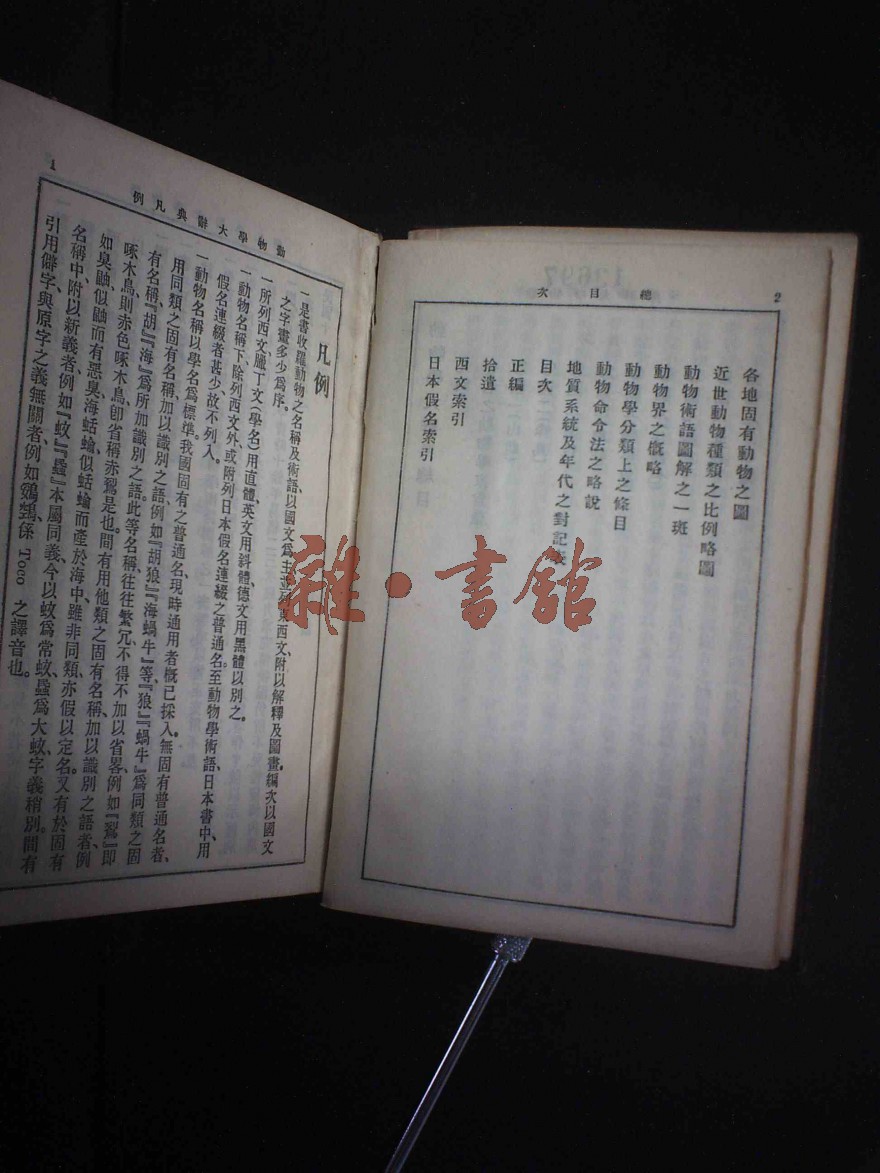 2
總目次
各地固有動物之圖
近世動物種類之比例略圖
動物術語圖解之一斑
動物界之概略
動物學分類上之條目
動物命令法之略說
地質系統及年代之對記表
目次
正編
拾遺
西文索引
日本假名索引
動物學大辭典凡例
1
凡例
一是書收羅動物之名稱及術語、以國文爲主、並列東西文、附以解釋及圖畫、編次以國文
之字畫多少爲序。
一所列西文、臘丁文(學名)用直體、英文用斜體、德文用黑體以別之。
一動物名稱下、除列西文外、或附列日本假名連綴之普通名。至動物學術語、日本書中、用
假名連綴者甚少、故不列入。
一動物名稱以學名爲標準。我國固有之普通名、現時通用者、概已採入。無固有普通名者、
用同類之固有名稱、加以識別之語、例如『胡狼』『海蝸牛』等、『狼』『蝸牛』爲同類之固
有名稱、『胡』『海』爲所加識別之語。此等名稱、往往繁冗、不得不加以省畧、例如『鴷』即
啄木鳥、則赤色啄木鳥、卽省稱赤鴷是也。間有用他類之固有名稱、加以識別之語者、例
如臭鼬、似鼬而有惡臭、海蛞蝓、似蛞蝓而產於海中、雖非同類、亦假以定名。又有於固有
名稱中、附以新義者、例如『蚊』『蟁』本屬同義、今以蚊爲常蚊、蟁爲大蚊、字義稍別。間有
引用僻字、與原字之義無關者、例如鵎鵼、係 Toco 之譯音也。
雜·書館